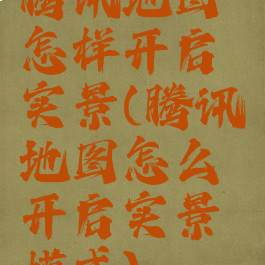 腾讯地图
怎样开启
实景(腾讯
地图怎么
开启实景
模式)